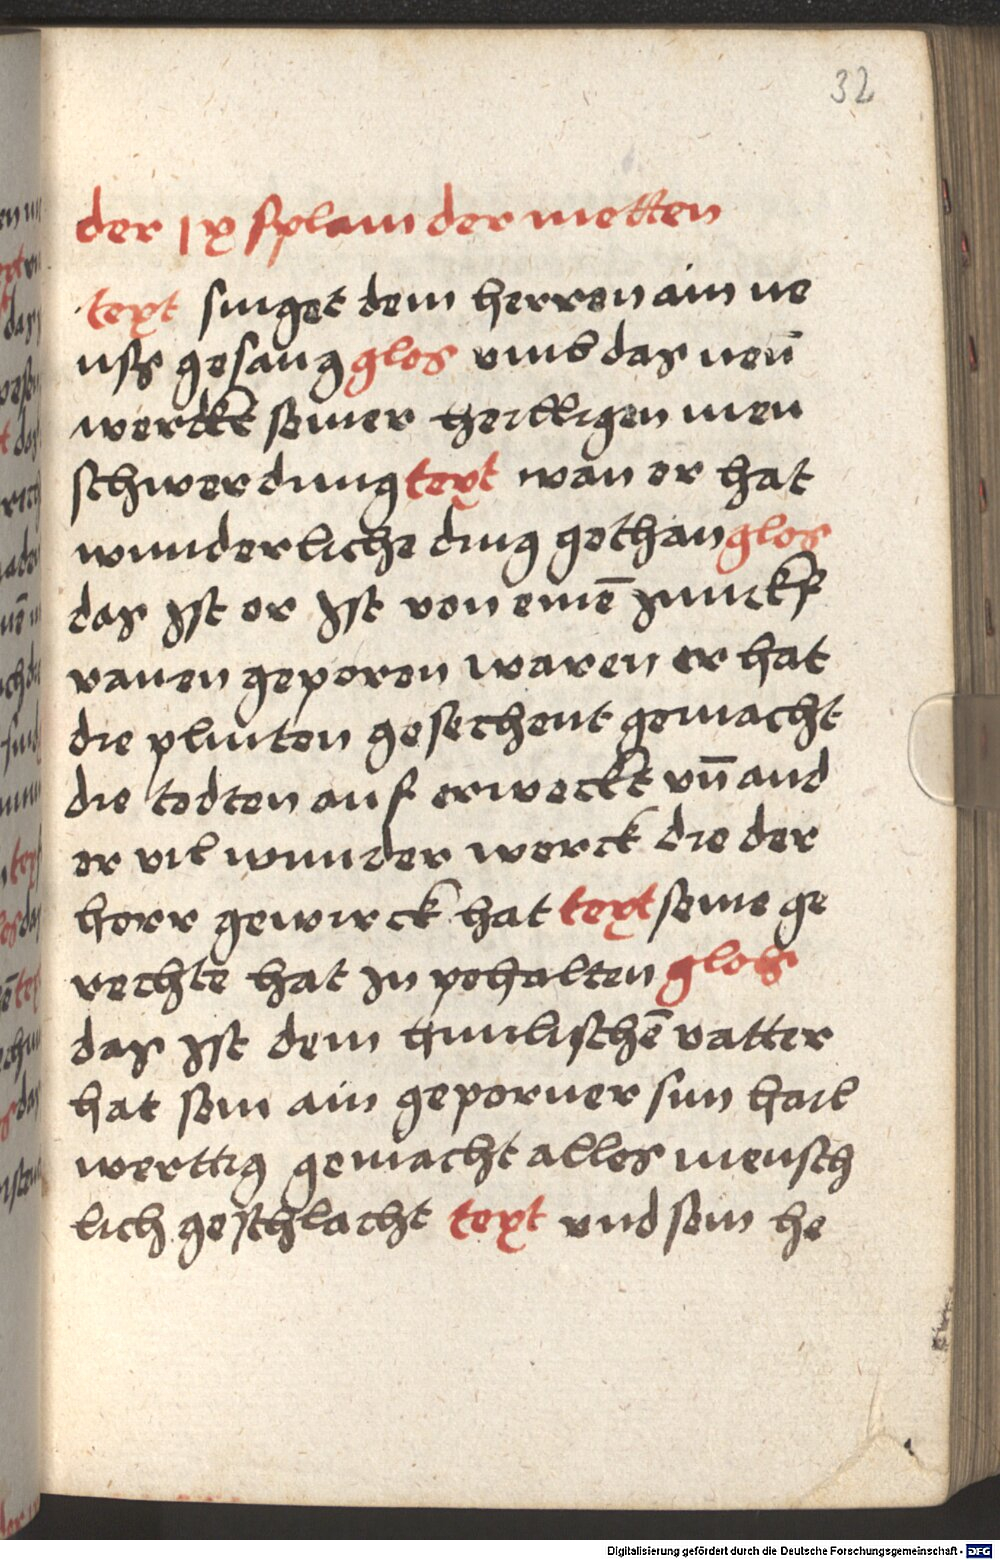 32
der 1x splam der metten
text singet dem herren ain ne
uss gesang glos vmb das neu̅
werckt seiner heilligen men
schwerdung text wan er hat
wunderliche ding gethan glos
das Ist er Ist von eine̅ Junckf
rauen geporen waren er hat
die plinten gesechent gemacht
die todten auf erweckt vn̅ and
er vil wunder werck die der
herr gewirck hat text seine ge
rechte hat Jn pehalten glos
das Ist dem himlische̅ vatter
hat sein ain geporner sun hail
werttig gemacht alles mensch
lich geschlacht text vnd sein he
Digitalisierung gefördert durch die Deutsche Forschungsgemeinschaft - DFG